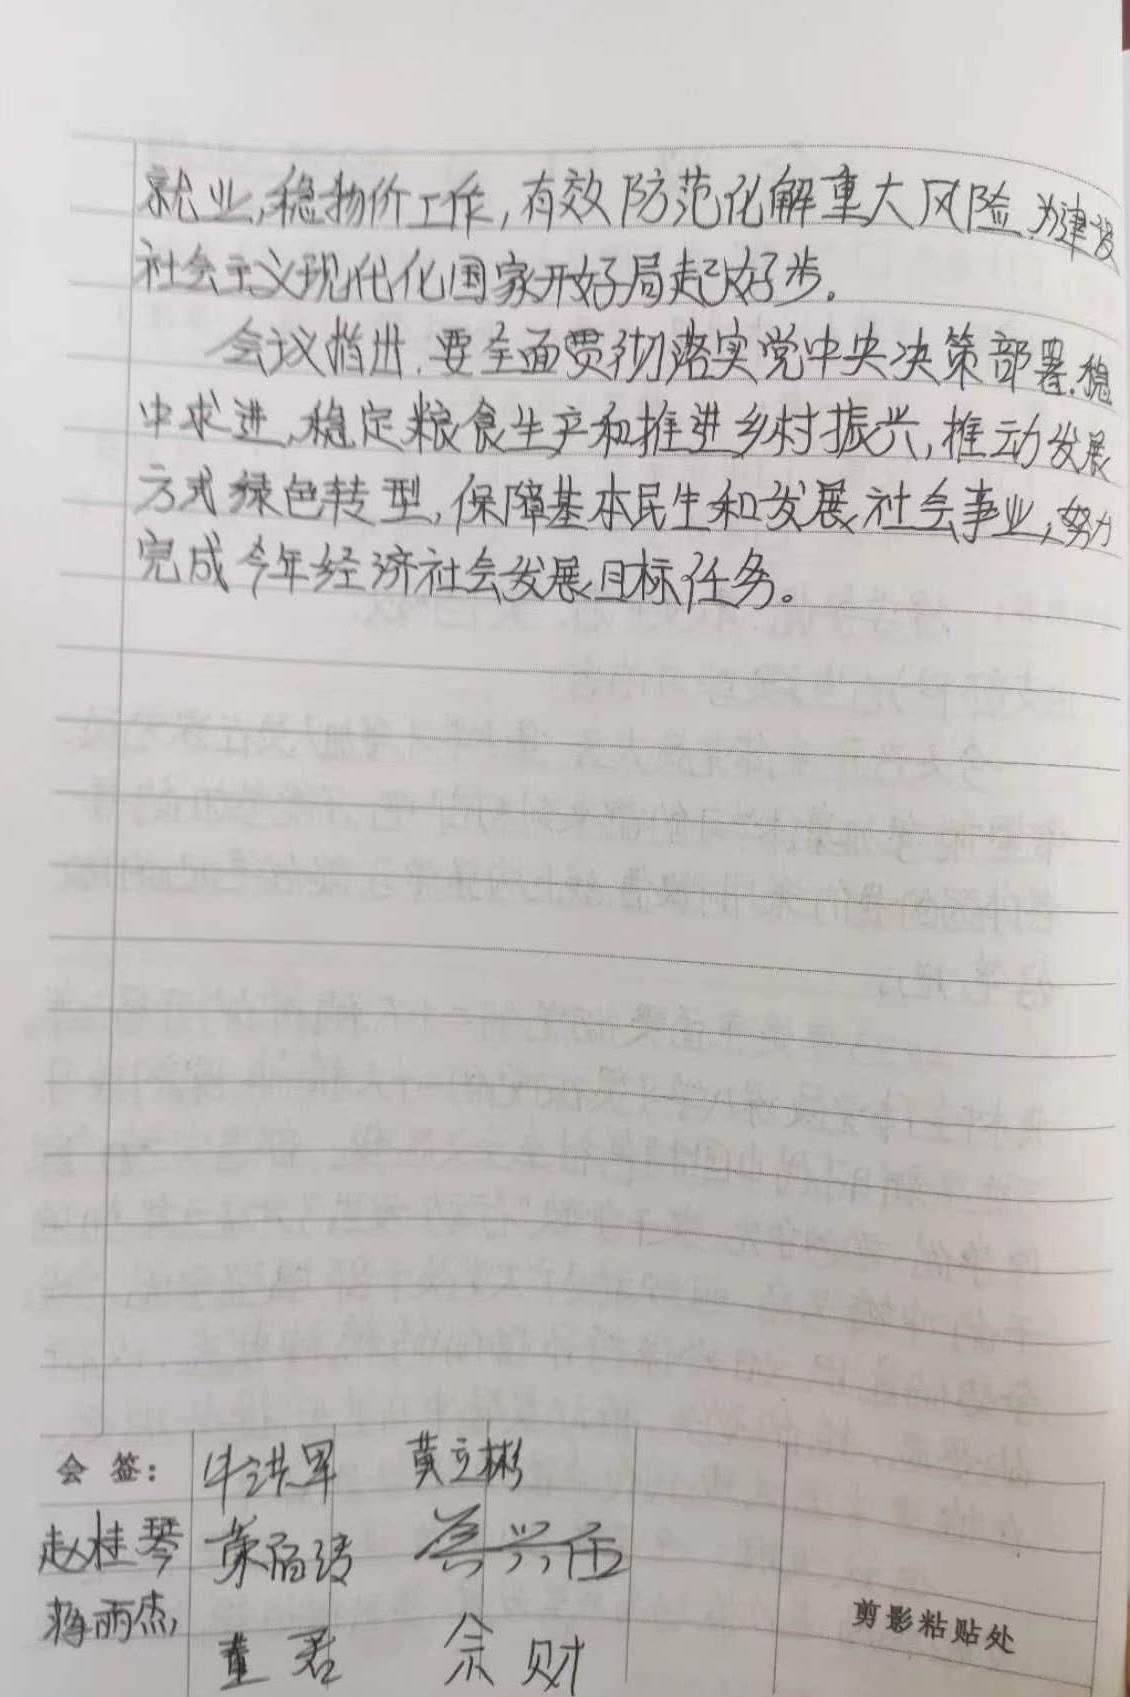 就业,稳物价工作,有效防范化解重大风险,为建设
社会主义现代化国家开好局起好步。
会议指出,要全面贯彻落实党中央决策部署,稳
中求进,稳定粮食生产和推进乡村振兴,推动发展
方式绿色转型,保障基本民生和发展社会事业,努力
完成今年经济社会发展目标任务。
会 签: 牛洪军 黄立彬
赵桂琴 兴伍
蒋雨杰
董君 余财
剪影粘贴处